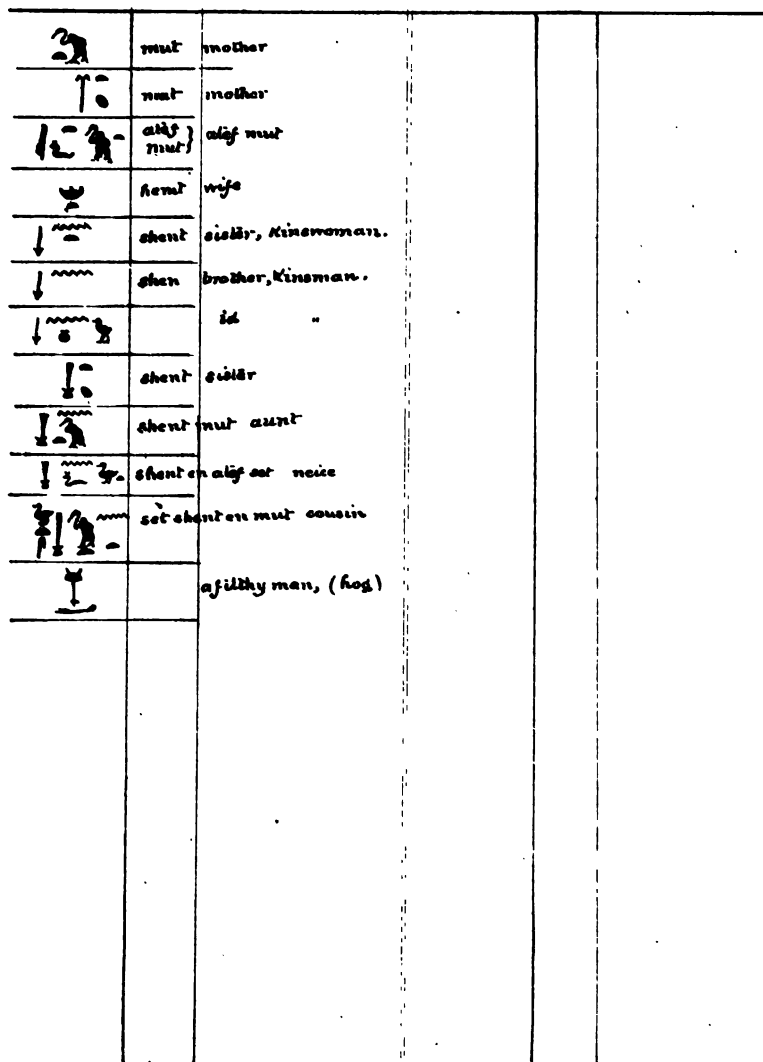 mut mother
mut mother
atef mut } atef mut
hemt wife
shent sister, Kinswoman.
shen brother, Kinsman.
id "
shent sister
shent mut aunt
shent en atef set neice
set shent en mut cousin
a filthy man, (hog)